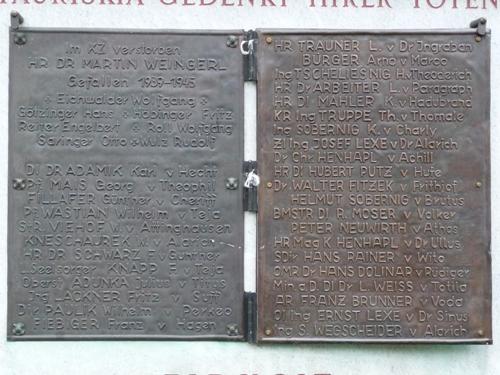 TAURISKIA GEDENKT IHRER TOTEN
Im KZ verstorben
HR DR MARTIN WEINGERL
Gefallen 1939-1945
Eichwalder Wolfgang
Götzinger Hans Hobinger Fritz
Reiter Engelbert Roll Wolfgang
Saringer Otto Wulz Rudolf
DI DR ADAMIK Karl v Hecht
Pf. MAIS Georg v Theophil
FILLAFER Günther v Cheriff
Pf WASTIAN Wilhelm v Teja
StR. VIEHOF W. v Attinghausen
KNESCHAUREK W. v Alarich
HR DR SCHWARZ F. v Gunther
LSeelsorger KNAPP F v Teja
Oberst ADUNKA Julius v Titus
Ing LACKNER Fritz v Suff
Dir PAULIK Wilhelm v Perkeo
FIEBIGER Franz v Hagen
HR TRAUNER L. v Dr Ingraban
BÜRGER Arno v Marco
Ing TSCHELIESNIG H. v Theoderich
HR Dr ARBEITER L. v Paragraph
HR DI MAHLER K. v Hadubrand
KR Ing TRUPPE Th. v Thomale
Ing SOBERNIG K. v Charly
ZI Ing JOSEF LEXE v Dr Alarich
Dr Chr HENHAPL v Achill
HR DI HUBERT PUTZ v Hufe
Dr WALTER FITZEK v Frithjof
HELMUT SOBERNIG v Brutus
BMSTR DI R. MOSER v Volker
PETER NEUWIRTH v Athos
HR Mag K HENHAPL v Dr Ullus
SDir HANS RAINER v Wito
OMR Dr HANS DOLINAR v Rüdiger
Min.a.D. DI Dr L. WEISS v Totila
AR FRANZ BRUNNER v Voda
OT Ing ERNST LEXE v Dr Sinus
Ing S. WEGSCHEIDER v Alarich